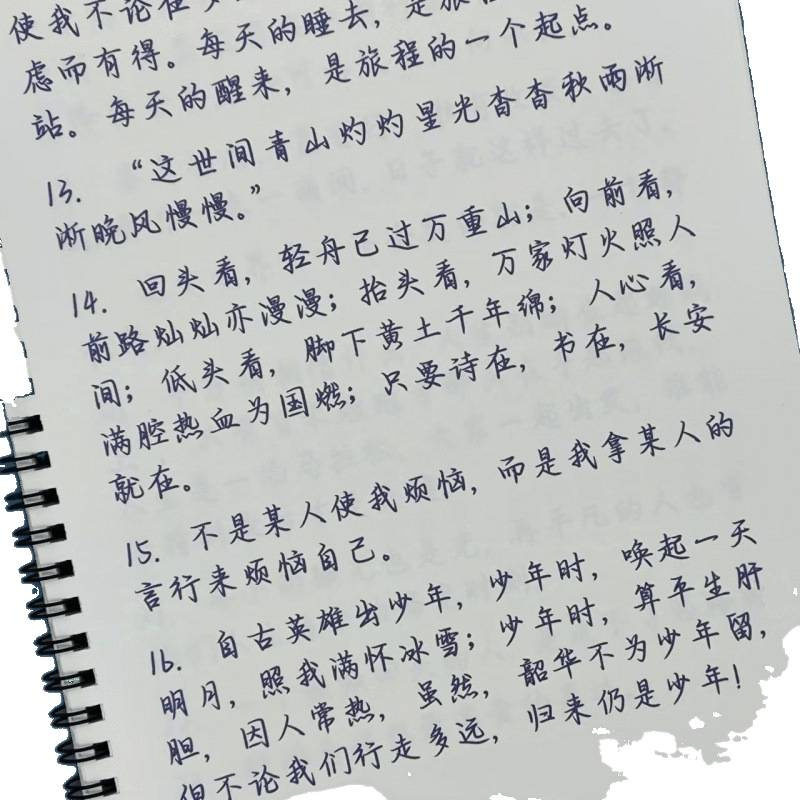 使我不论在
虑而有得。每天的睡去，是旅
站。每天的醒来，是旅程的一个起点。
13. “这世间青山灼灼星光杳杳秋雨淅
淅晚风慢慢。”
14. 回头看，轻舟已过万重山；向前看，
前路灿灿亦漫漫；抬头看，万家灯火照人
间；低头看，脚下黄土千年绵；人心看，
满腔热血为国燃；只要诗在，书在，长安
就在。
15. 不是某人使我烦恼，而是我拿某人的
言行来烦恼自己。
16. 自古英雄出少年，少年时，唤起一天
明月，照我满怀冰雪；少年时，算平生肝
胆，因人常热，虽然，韶华不为少年留，
但不论我们行走多远，归来仍是少年！